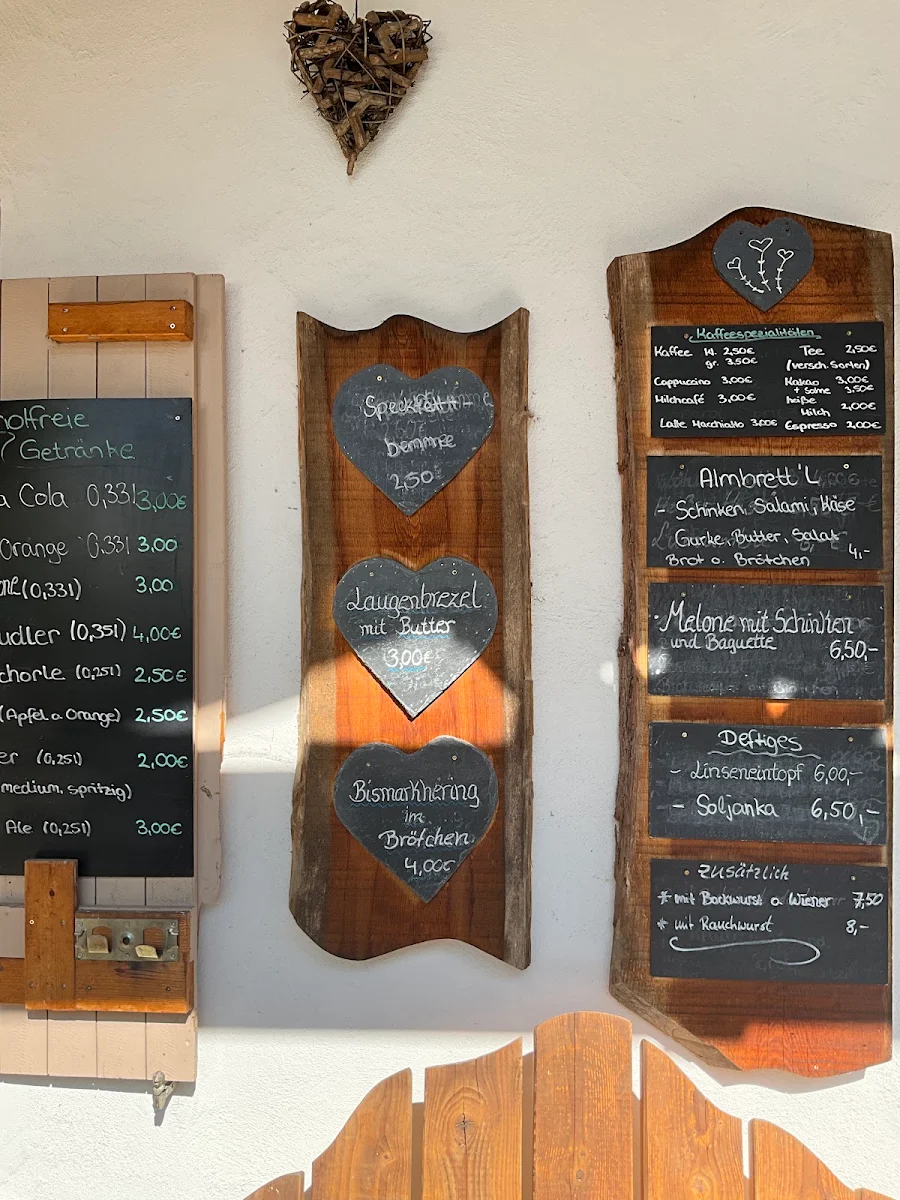 holfreie
Getränke
a Cola 0,33l 3,00€
Orange 0,33l 3,00
ne (0,33l) 3,00
udler (0,35l) 4,00€
chorle (0,25l) 2,50€
(Apfel o. Orange) 2,50€
er (0,25l) 2,00€
medium, spritzig)
Ale (0,25l) 3,00€
Speckfett-
bemme
2,50
Laugenbrezel
mit Butter
3,00€
Bismarkhering
im
Brötchen
4,00€
Kaffeespezialitäten
Kaffee kl. 2,50€
gr. 3,50€
Cappuccino 3,00€
Milchcafé 3,00€
Latte Macchiatto 3,00€
Tee 2,50€
(versch. Sorten)
Kakao 3,00€
+ Sahne 3,50€
heiße
Milch 2,00€
Espresso 2,00€
Almbrett'L
- Schinken, Salami, Käse
Gurke, Butter, Salat
Brot o. Brötchen 4,-
Melone mit Schinken
und Baguette 6,50,-
Deftiges
- Linseneintopf 6,00,-
- Soljanka 6,50,-
Zusätzlich
* mit Bockwurst o. Wiener 7,50
* mit Rauchwurst 8,-